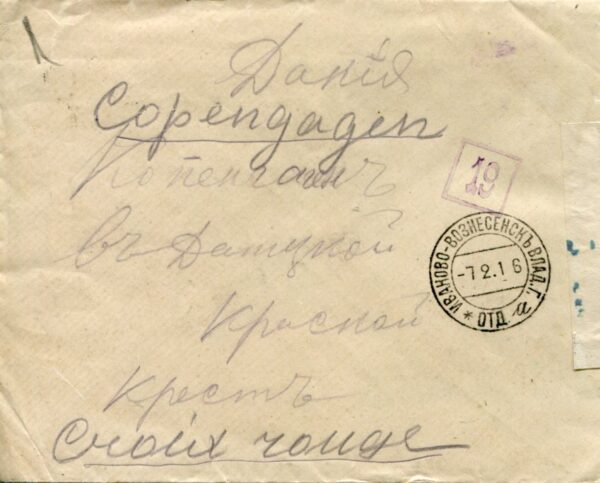 Данія
Copengagen
Копенгагенъ
19
въ Датцкой
ИВАНОВО-ВОЗНЕСЕНСКЪ ВЛАД.Г.
-7 2.1 6
* ОТД. а
Красной
Крестъ
Croix rouge